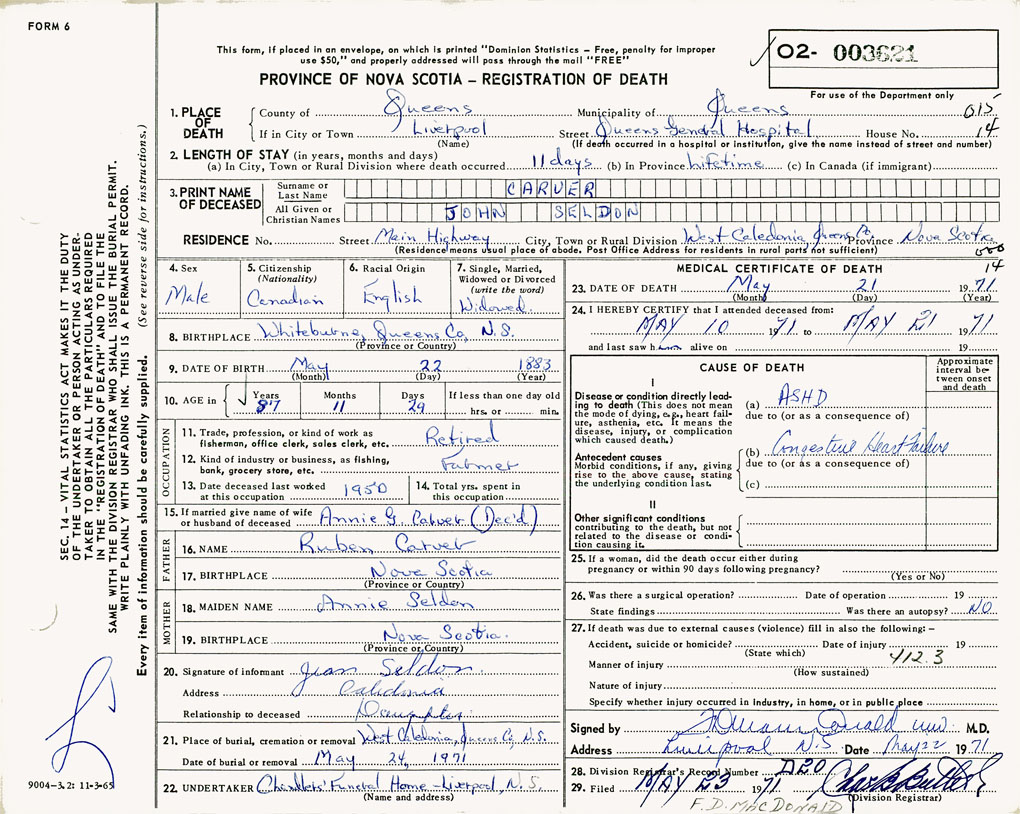 FORM 6
This form, if placed in an envelope, on which is printed "Dominion Statistics – Free, penalty for improper
use $50," and properly addressed will pass through the mail "FREE"
PROVINCE OF NOVA SCOTIA – REGISTRATION OF DEATH
02- 003621
For use of the Department only
015
14
1. PLACE OF DEATH
County of Queens Municipality of Queens
If in City or Town Liverpool Street Queens General Hospital House No.
(Name) (If death occurred in a hospital or institution, give the name instead of street and number)
2. LENGTH OF STAY (in years, months and days)
(a) In City, Town or Rural Division where death occurred 11 days (b) In Province Lifetime (c) In Canada (if immigrant)
3. PRINT NAME OF DECEASED
Surname or Last Name CARVER
All Given or Christian Names JOHN SELDON
RESIDENCE No. Street Main Highway City, Town or Rural Division West Caledonia, Queens Co, Province Nova Scotia
(Residence means usual place of abode. Post Office Address for residents in rural parts not sufficient)
000
14
4. Sex
Male
5. Citizenship
(Nationality)
Canadian
6. Racial Origin
English
7. Single, Married,
Widowed or Divorced
(write the word)
Widowed
8. BIRTHPLACE Whiteburne, Queens Co, N.S.
(Province or Country)
9. DATE OF BIRTH May 22 1883
(Month) (Day) (Year)
10. AGE in Years Months Days If less than one day old
87 11 29 hrs. or min.
OCCUPATION
11. Trade, profession or kind of work as
fisherman, office clerk, sales clerk, etc. Retired
12. Kind of industry or business, as fishing,
bank, grocery store, etc. Farmer
13. Date deceased last worked
at this occupation 1950
14. Total yrs. spent in
this occupation
15. If married give name of wife
or husband of deceased Annie G. Carver (Dec'd)
FATHER
16. NAME Ruben Carver
17. BIRTHPLACE Nova Scotia
(Province or Country)
MOTHER
18. MAIDEN NAME Annie Seldon
19. BIRTHPLACE Nova Scotia.
(Province or Country)
20. Signature of informant Jean Seldon
Address Caledonia
Relationship to deceased Daughter
21. Place of burial, cremation or removal West Caledonia, Queens Co, N.S.
Date of burial or removal May 24, 1971
22. UNDERTAKER Chandlers' Funeral Home – Liverpool, N.S.
(Name and address)
MEDICAL CERTIFICATE OF DEATH
23. DATE OF DEATH May 21 1971
(Month) (Day) (Year)
24. I HEREBY CERTIFY that I attended deceased from:
MAY 10 1971 to MAY 21 1971
and last saw him alive on 19
CAUSE OF DEATH
Approximate
interval be-
tween onset
and death
I
Disease or condition directly lead-
ing to death (This does not mean
the mode of dying, e.g., heart fail-
ure, asthenia, etc. It means the
disease, injury, or complication
which caused death.)
(a) ASHD
due to (or as a consequence of)
Antecedent causes
Morbid conditions, if any, giving
rise to the above cause, stating
the underlying condition last.
(b) Congestive Heart Failure
due to (or as a consequence of)
(c)
II
Other significant conditions
contributing to the death, but not
related to the disease or condi-
tion causing it.
25. If a woman, did the death occur either during
pregnancy or within 90 days following pregnancy?
(Yes or No)
26. Was there a surgical operation? Date of operation 19
State findings Was there an autopsy? NO
27. If death was due to external causes (violence) fill in also the following: –
Accident, suicide or homicide? Date of injury 19
(State which) 412.3
Manner of injury
(How sustained)
Nature of injury
Specify whether injury occurred in Industry, in home, or in public place
Signed by M.D.
Address Liverpool N.S Date May 22 1971
28. Division Registrar's Record Number D20
29. Filed MAY 23 1971
(Division Registrar)
F.D. MACDONALD
SEC. 14 – VITAL STATISTICS ACT MAKES IT THE DUTY
OF THE UNDERTAKER OR PERSON ACTING AS UNDER-
TAKER TO OBTAIN ALL THE PARTICULARS REQUIRED
IN THE "REGISTRATION OF DEATH" AND TO FILE THE
SAME WITH THE DIVISION REGISTRAR WHO SHALL ISSUE THE BURIAL PERMIT.
WRITE PLAINLY WITH UNFADING INK. THIS IS A PERMANENT RECORD.
Every item of information should be carefully supplied. (See reverse side for instructions.)
9004–3.2: 11-3-65